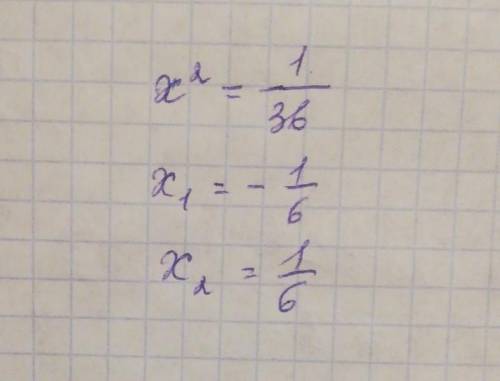 x² = 1/36
x₁ = - 1/6
x₂ = 1/6